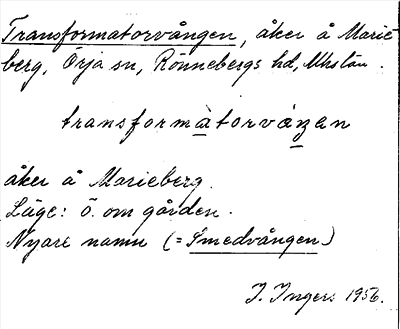 Transformatorvången, åker å Marie-
berg, Örja sn, Rönnebergs hd, Mhs län.
transformàtorváŋen
åker å Marieberg.
Läge: Ö. om gården.
Nyare namn (= Smedvången)
I. Ingers 1956.